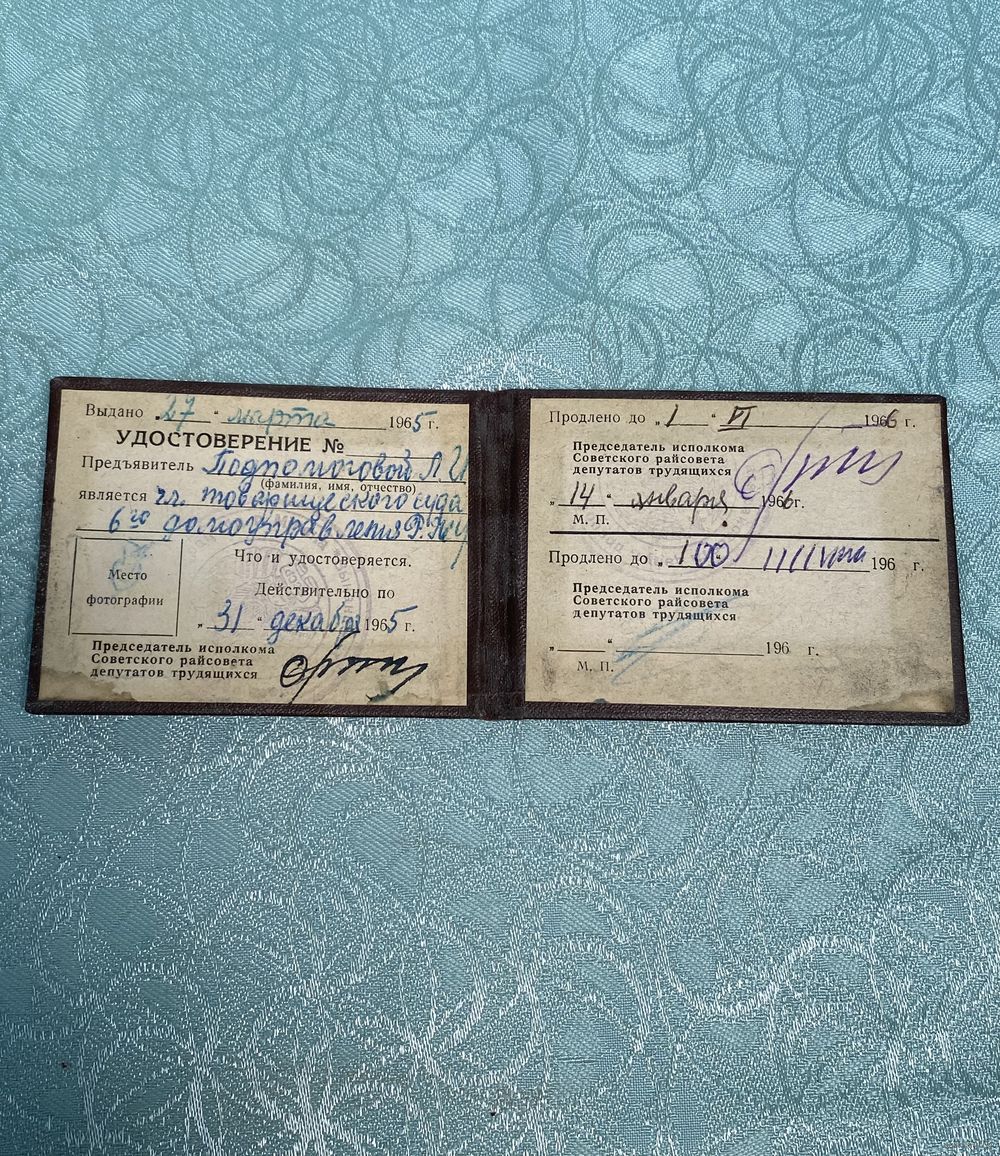 Выдано „27“ марта 1965 г.
УДОСТОВЕРЕНИЕ №
Предъявитель Подпомоговой Л. И
(фамилия, имя, отчество)
является чл. товарищеского суда
6го домоуправления
Что и удостоверяется.
Место
фотографии
Действительно по
„31“ декабр 1965 г.
Председатель исполкома
Советского райсовета
депутатов трудящихся
Продлено до „1“ VI 1966 г.
Председатель исполкома
Советского райсовета
депутатов трудящихся
„14“ января 1966г.
М. П.
Продлено до „100 196 г.
Председатель исполкома
Советского райсовета
депутатов трудящихся
„ “ 196 г.
М. П.